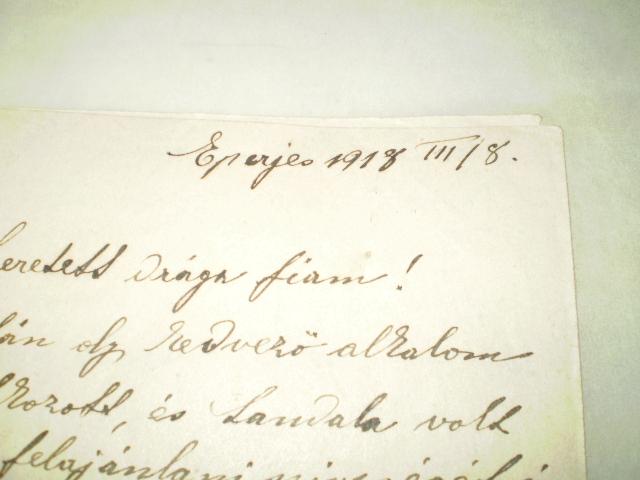 Eperjes 1918 III/8.
eretett drága fiam!
án oly kedvező alkalom
kozott, és tandala volt
felajánlani